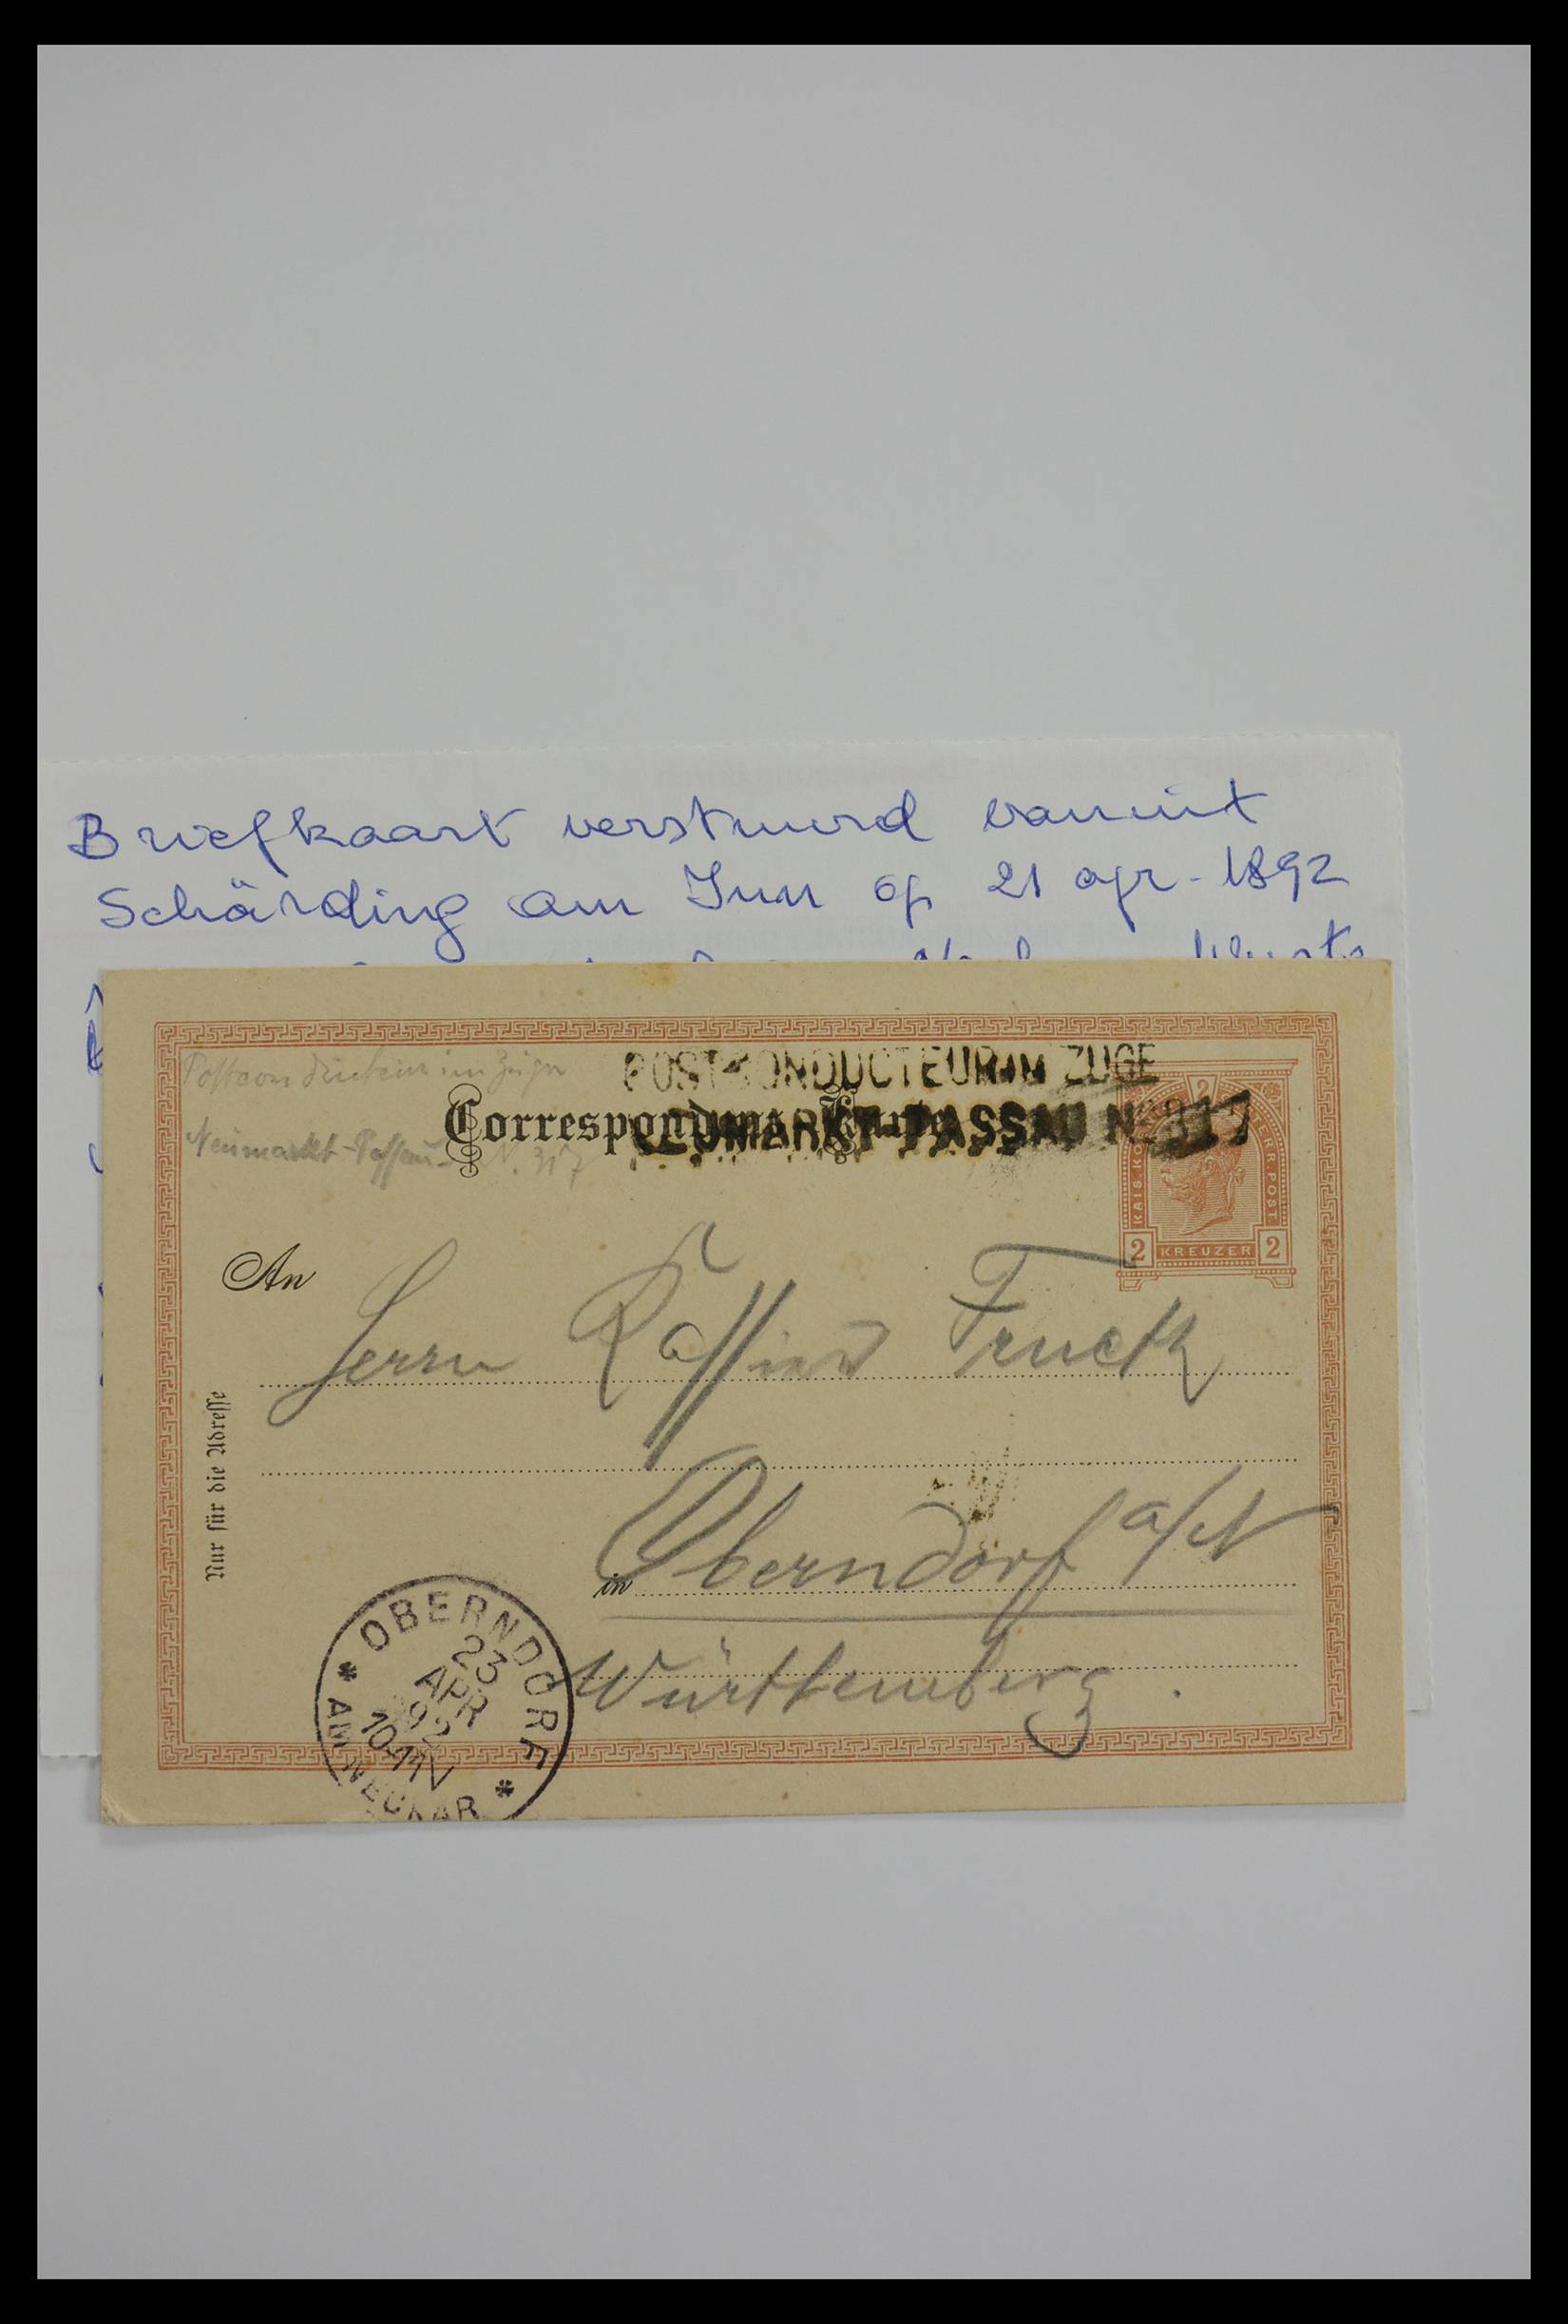 Briefkaart verstuurd vanuit
Schärding am Inn op 21 apr. 1892
Postconducteur im Zuge
Neumarkt-Passau N. 317
POSTCONDUCTEUR IM ZUGE
NEUMARKT-PASSAU No 317
Correspondenz-Karte
KAIS. KÖ ERR. POST.
2
2 KREUZER 2
An
Herrn Truck
Nur für die Adresse
in Oberndorf a/N
Württemberg.
OBERNDORF
23
APR
92
10-11 V
AM NECKAR